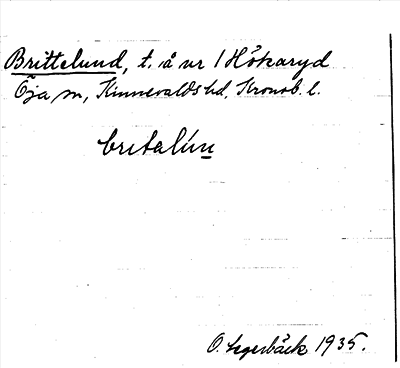 Brittelund, t. å nr 1 Hökaryd
Öja sn, Kinnevalds hd, Kronob. l.
britalún
O. Legerbäck 1935.